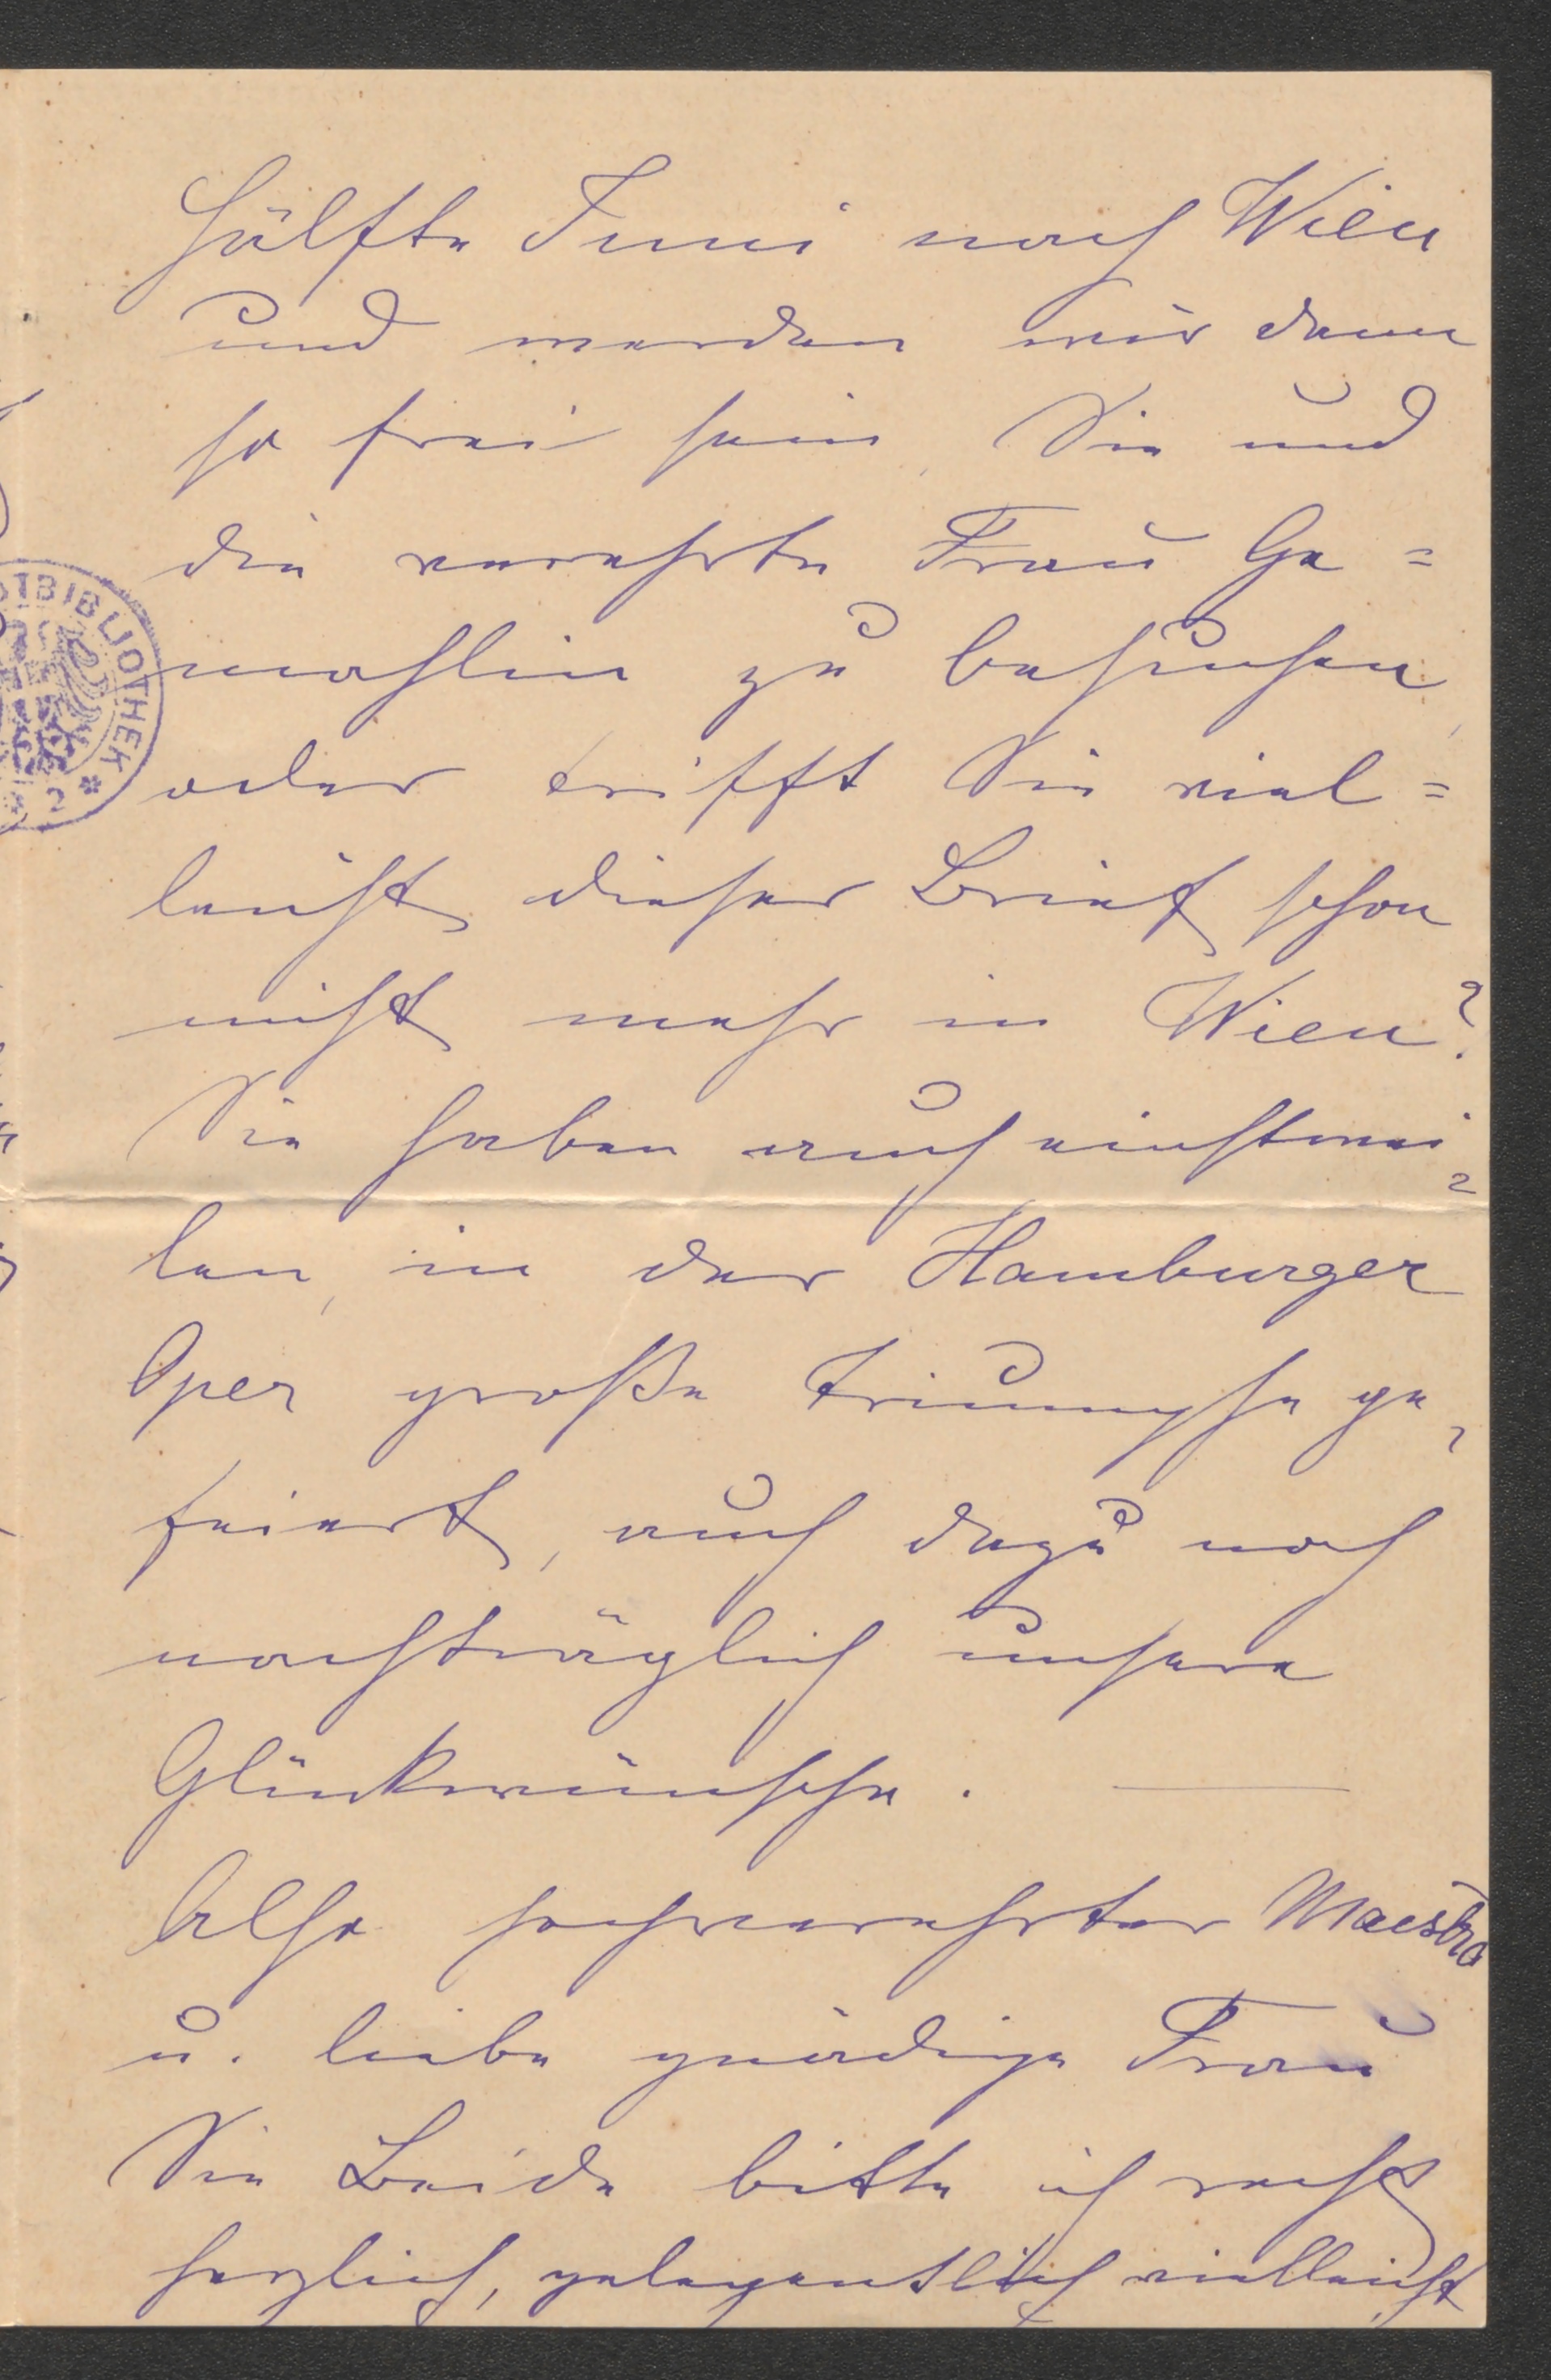 Hälfte Juni nach Wien
und werden wir dann
so frei sein, Sie und
die verehrte Frau Ge=
mahlin zu besuchen,
oder trifft Sie viel=
leicht dieser Brief schon
nicht mehr in Wien?
Sie haben auch einstwei=
len, in der Hamburger
Oper große Triumphe ge=
feiert, auch dazu noch
nachträglich unsere
Glückwünsche. —
Also hochverehrter Maestro
u. liebe gnädige Frau
Sie Beide bitte ich recht
herzlich, gelegentlich vielleicht
BIBLIOTHEK *